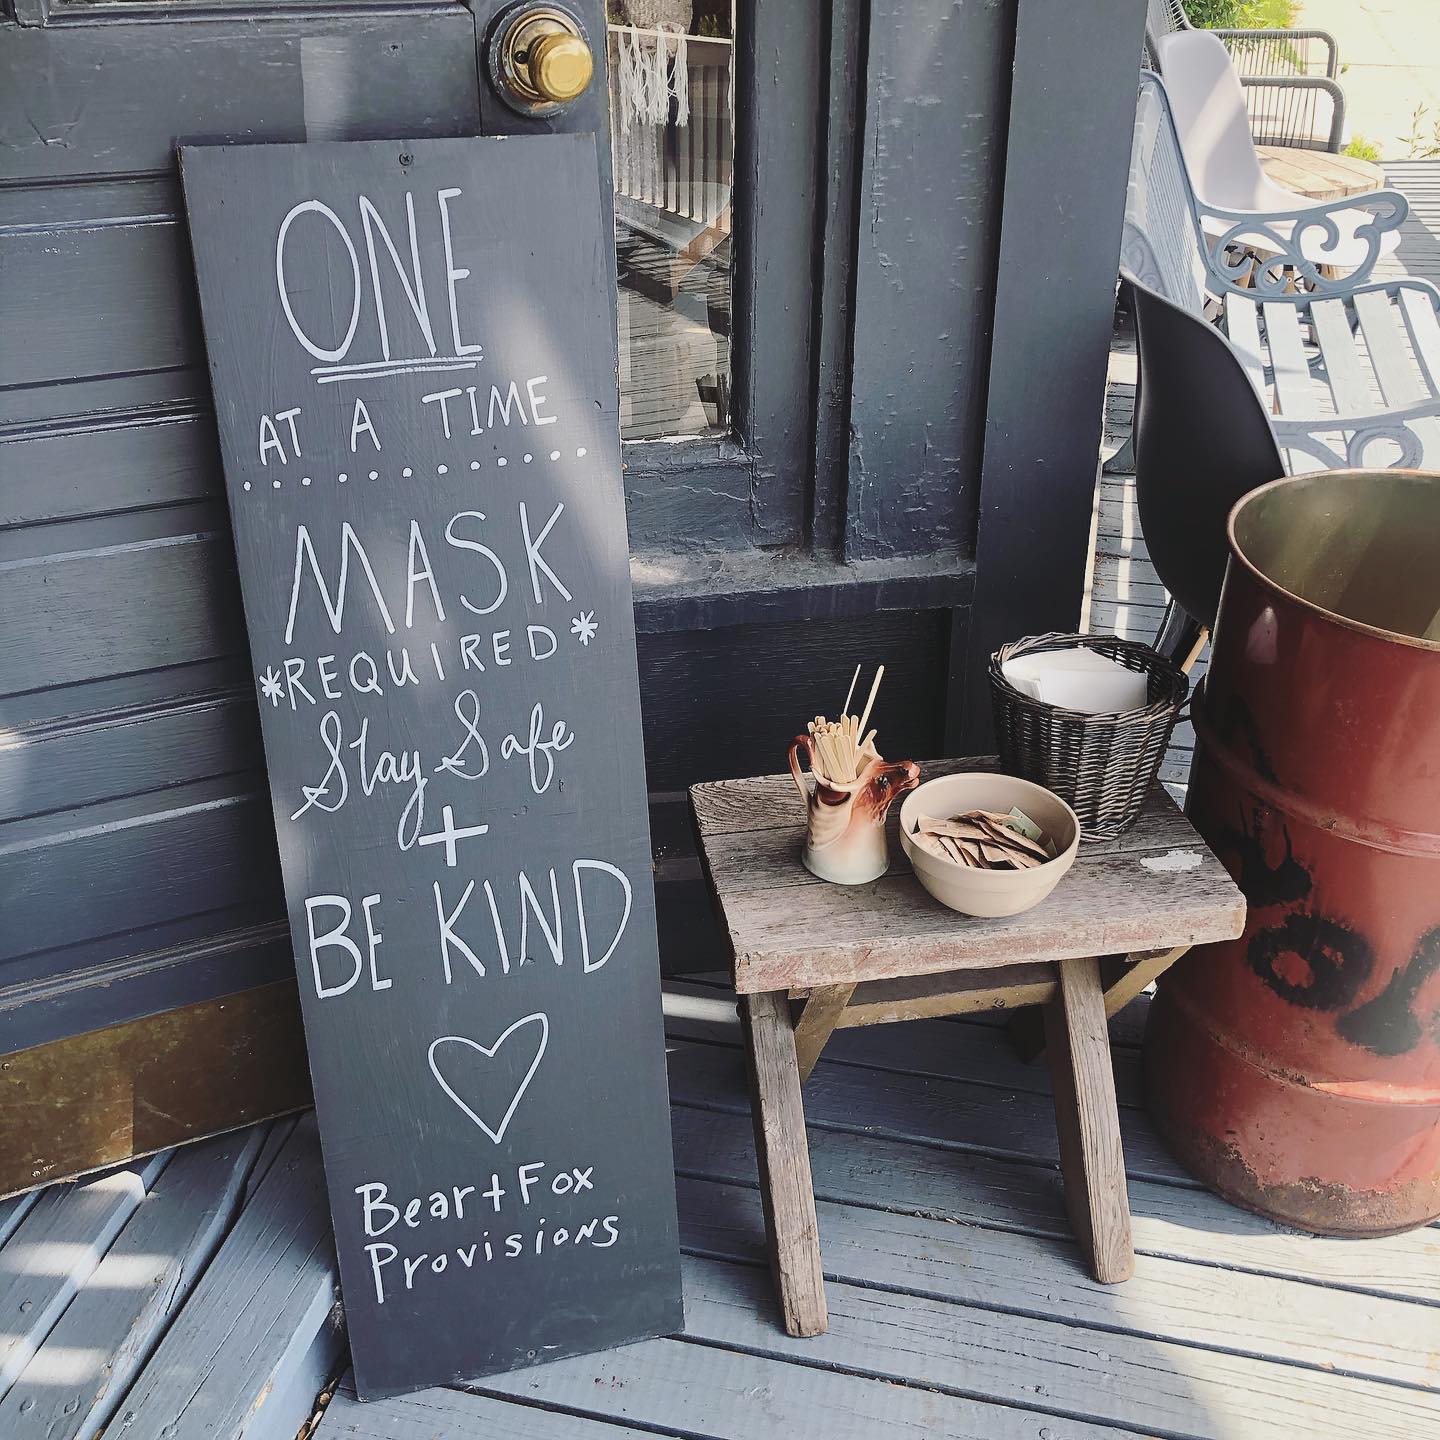 ONE
AT A TIME
MASK
*REQUIRED*
Stay Safe
+
BE KIND
Bear + Fox
Provisions